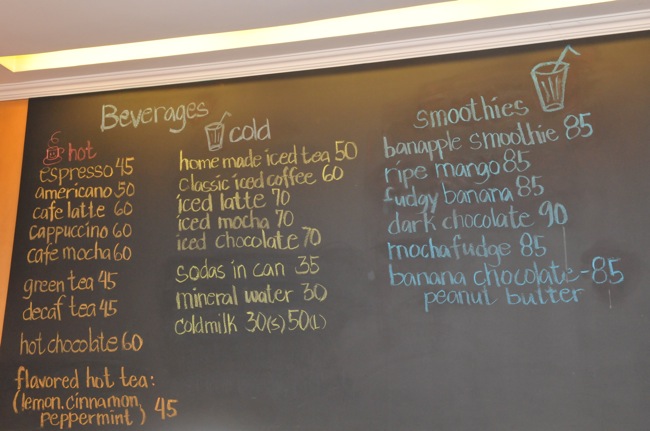 Beverages
hot
espresso 45
americano 50
cafe latte 60
cappuccino 60
cafe mocha 60
green tea 45
decaf tea 45
hot chocolate 60
flavored hot tea:
(lemon, cinnamon,
peppermint) 45
cold
home made iced tea 50
classic iced coffee 60
iced latte 70
iced mocha 70
iced chocolate 70
sodas in can 35
mineral water 30
cold milk 30(s) 50(l)
smoothies
banapple smoothie 85
ripe mango 85
fudgy banana 85
dark chocolate 90
mocha fudge 85
banana chocolate - 85
peanut butter